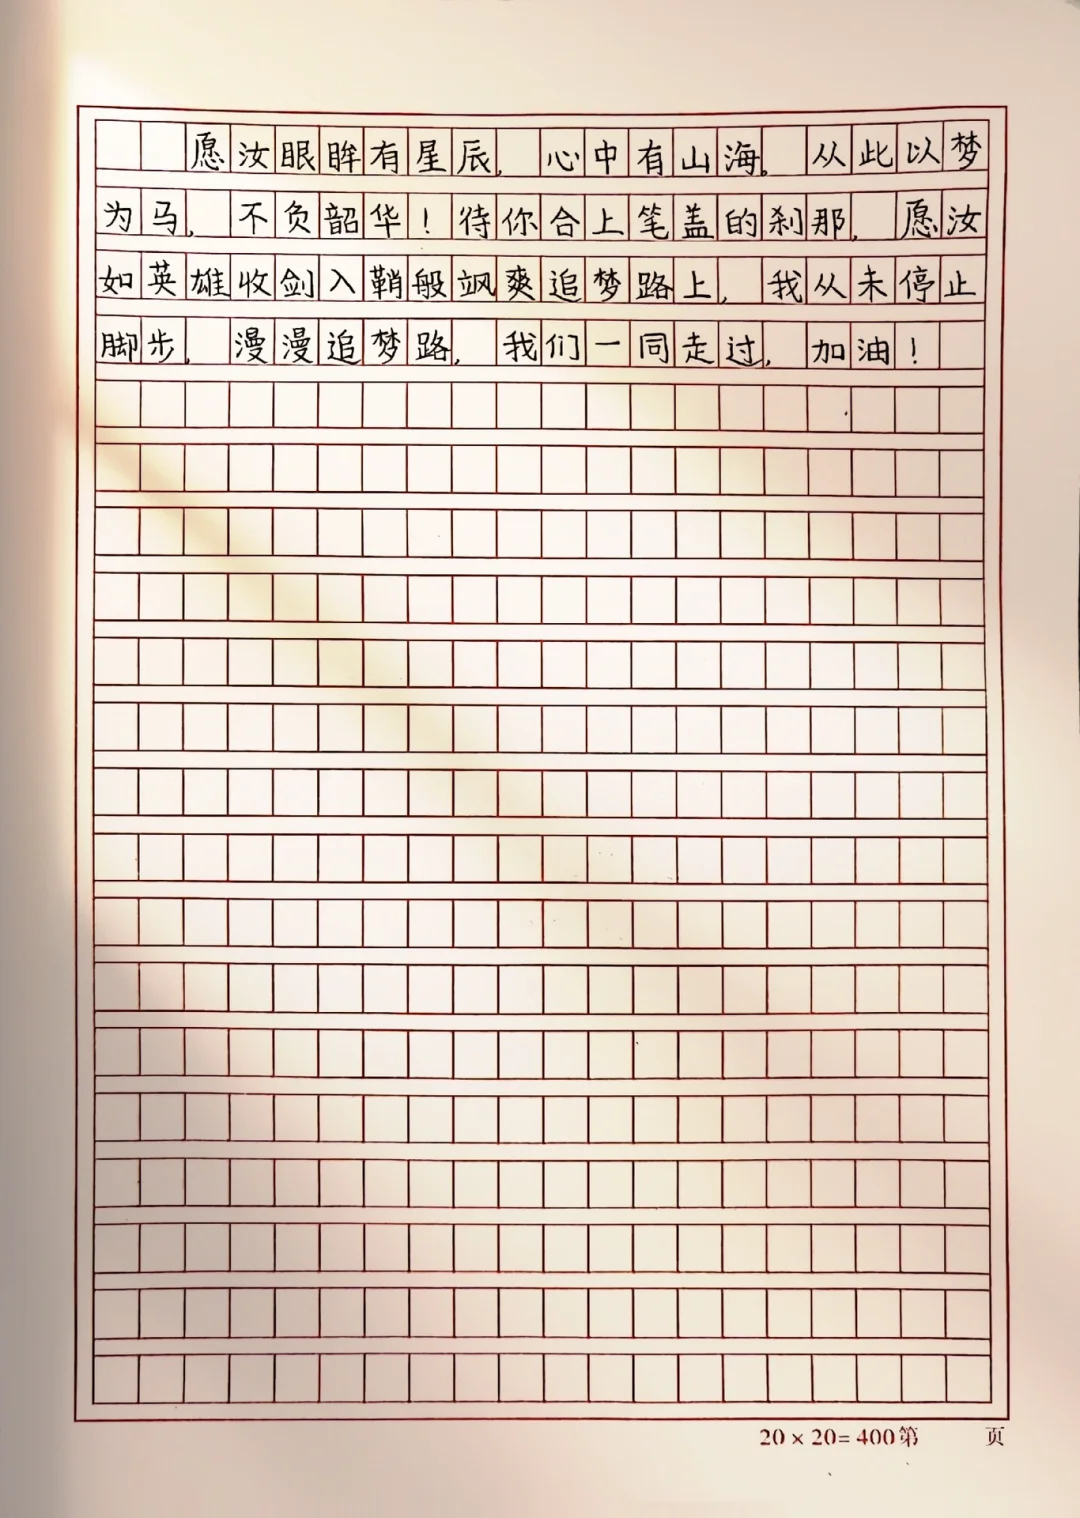 愿汝眼眸有星辰,心中有山海。从此以梦
为马,不负韶华!待你合上笔盖的刹那,愿汝
如英雄收剑入鞘般飒爽追梦路上,我从未停止
脚步,漫漫追梦路,我们一同走过,加油!
20×20=400第 页